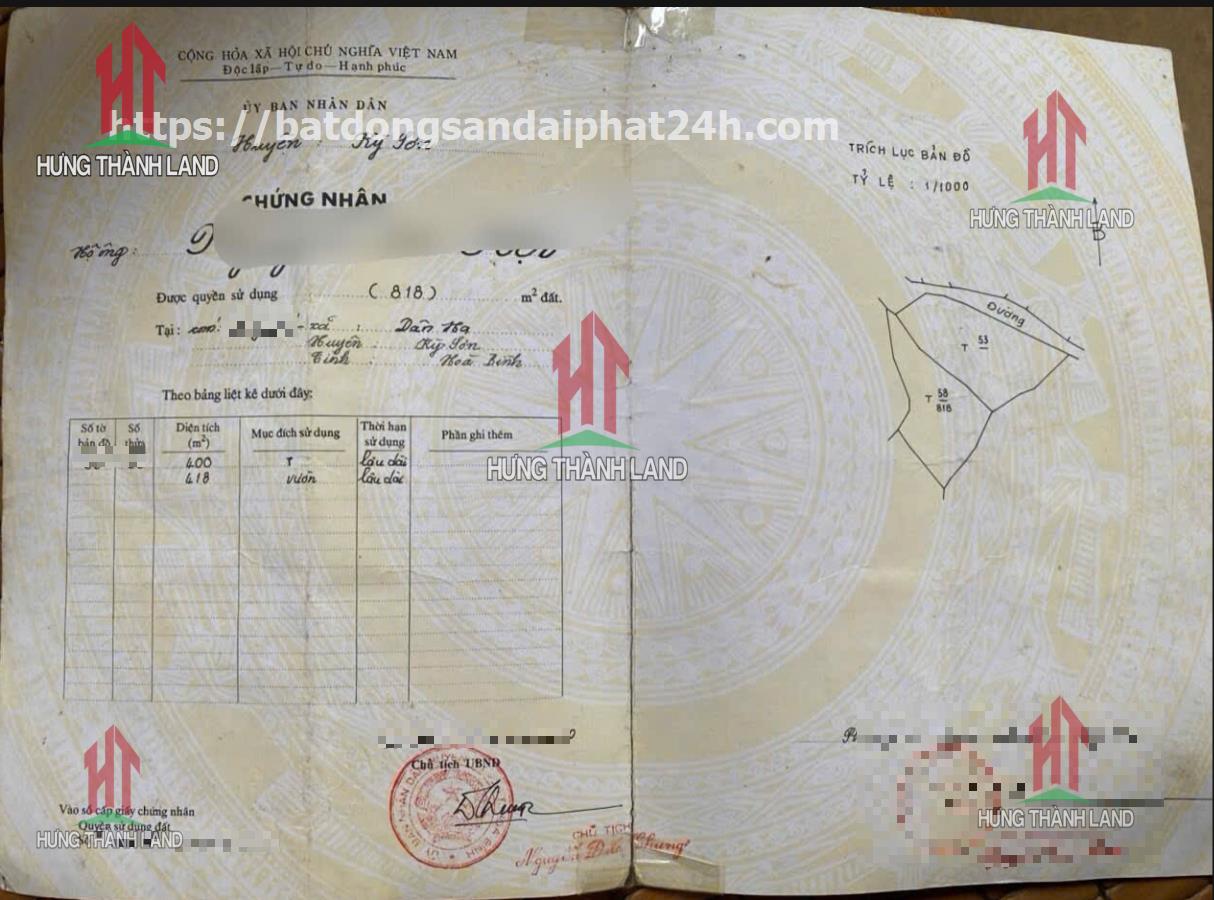 CỘNG HÒA XÃ HỘI CHỦ NGHĨA VIỆT NAM
Độc lập — Tự do — Hạnh phúc
ỦY BAN NHÂN DÂN
https://batdongsandaiphat24h.com
Huyện : Kỳ Sơn
HƯNG THÀNH LAND
CHỨNG NHẬN
Hộ ông:
Được quyền sử dụng (818) m² đất.
Tại: xã : Dân Hạ
Huyện : Kỳ Sơn
Tỉnh : Hoà Bình
Theo bảng liệt kê dưới đây:
Số tờ bản đồ Số thửa Diện tích (m²) Mục đích sử dụng Thời hạn sử dụng Phần ghi thêm
400 T lâu dài
418 vườn lâu dài
HƯNG THÀNH LAND
Chủ tịch UBND
Vào sổ cấp giấy chứng nhận
Quyền sử dụng đất
HƯNG THÀNH LAND
CHỦ TỊCH
TRÍCH LỤC BẢN ĐỒ
TỶ LỆ : 1/1000
HƯNG THÀNH LAND
B
Đường
T 53
T 58
818
HƯNG THÀNH LAND